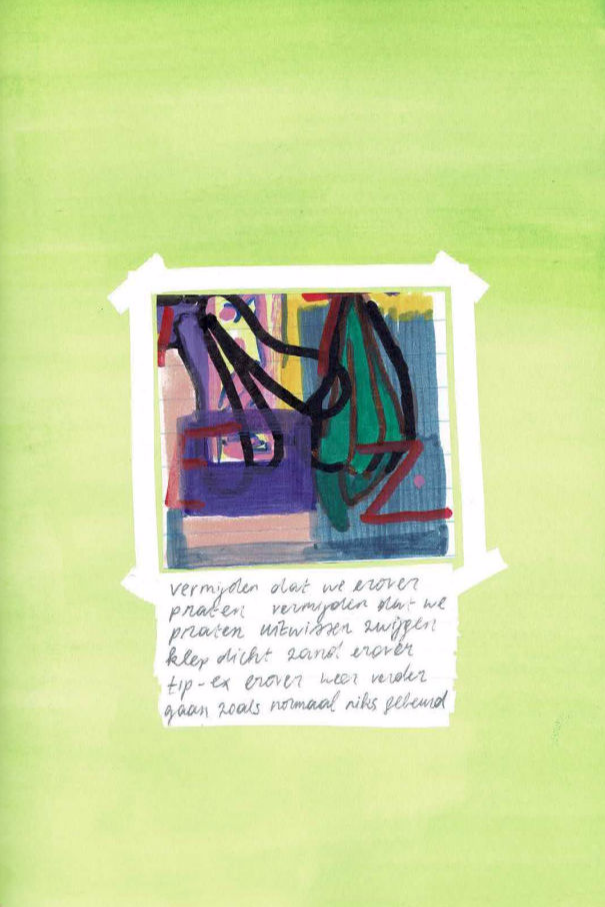 vermijden dat we erover
praten vermijden dat we
praten uitwissen zwijgen
klep dicht zand erover
tip-ex erover weer verder
gaan zoals normaal niks gebeurd